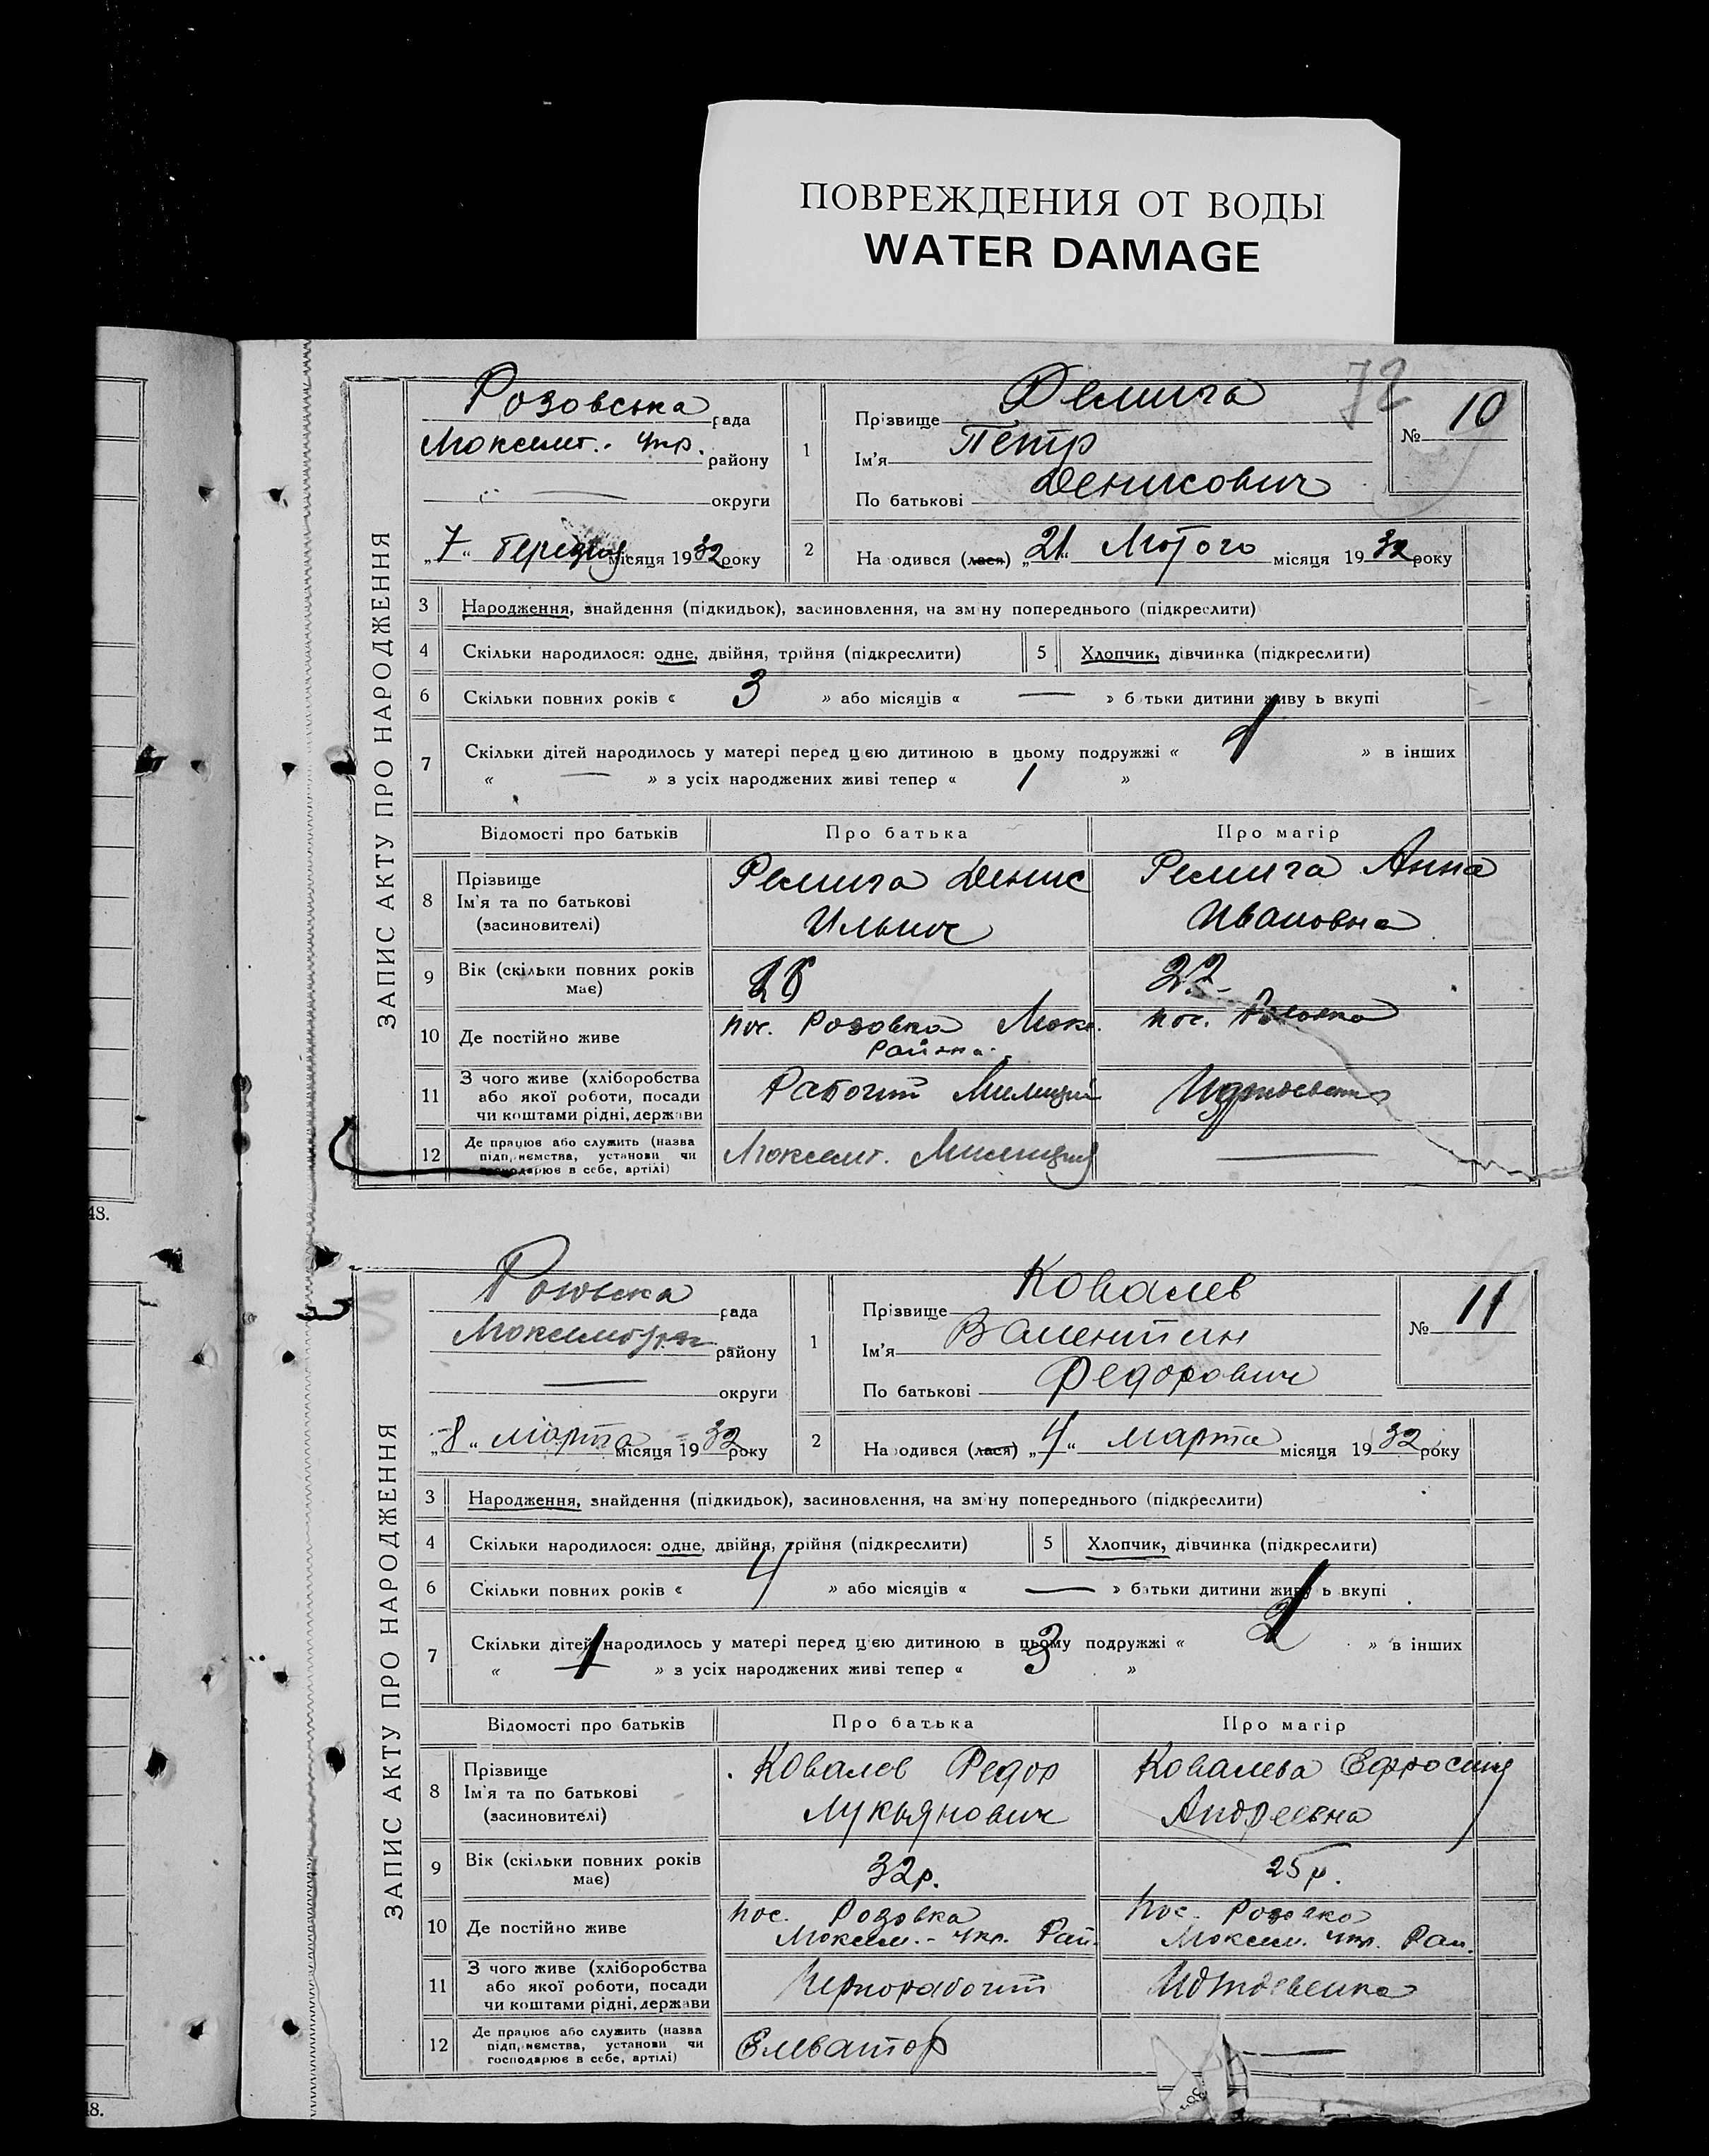 ПОВРЕЖДЕНИЯ ОТ ВОДЫ
WATER DAMAGE
72
ЗАПИС АКТУ ПРО НАРОДЖЕННЯ
Розовська рада
району
округи
„7“ березня місяця 1932 року
1
Прізвище Ремига
Ім'я Петр
По батькові Денисович
№ 10
2 На одився (лася) „21“ Лютого місяця 1932 року
3 Народження, знайдення (підкидьок), засиновлення, на зм ну попереднього (підкреслити)
4 Скільки народилося: одне, двійня, трійня (підкреслити) 5 Хлопчик, дівчинка (підкреслити)
6 Скільки повних років « 3 » або місяців « — » б тьки дитини живу ь вкупі
7 Скільки дітей народилось у матері перед цією дитиною в цьому подружжі « 1 » в інших
« — » з усіх народжених живі тепер « 1 »
Відомості про батьків Про батька Про матір
8 Прізвище Ім'я та по батькові (засиновителі) Ремига Денис Ильич Ремига Анна Ивановна
9 Вік (скільки повних років має) 22
10 Де постійно живе пос. Розовка района пос. Розовка
11 З чого живе (хліборобства або якої роботи, посади чи коштами рідні, держави Рабочий Милиции
12 Де працює або служить (назва підприємства, установи чи господарює в себе, артілі) Милиция —
48.
ЗАПИС АКТУ ПРО НАРОДЖЕННЯ
Розовська рада
району
— округи
„8“ марта місяця 1932 року
1
Прізвище Ковалев
Ім'я Валентин
По батькові Федорович
№ 11
2 На одився (лася) „4“ марта місяця 1932 року
3 Народження, знайдення (підкидьок), засиновлення, на зм ну попереднього (підкреслити)
4 Скільки народилося: одне, двійня, трійня (підкреслити) 5 Хлопчик, дівчинка (підкреслити)
6 Скільки повних років « 4 » або місяців « — » батьки дитини живу ь вкупі
7 Скільки дітей народилось у матері перед цією дитиною в цьому подружжі « » в інших
« » з усіх народжених живі тепер « 3 »
Відомості про батьків Про батька Про матір
8 Прізвище Ім'я та по батькові (засиновителі) Ковалев Федор Лукьянович Ковалева Ефросиня Андреевна
9 Вік (скільки повних років має) 32р. 25р.
10 Де постійно живе пос. Розовка Рай. пос. Розовка Рай.
11 З чого живе (хліборобства або якої роботи, посади чи коштами рідні, держави Чернорабочий Иждевенка
12 Де працює або служить (назва підприємства, установи чи господарює в себе, артілі) Елеватор —
48.